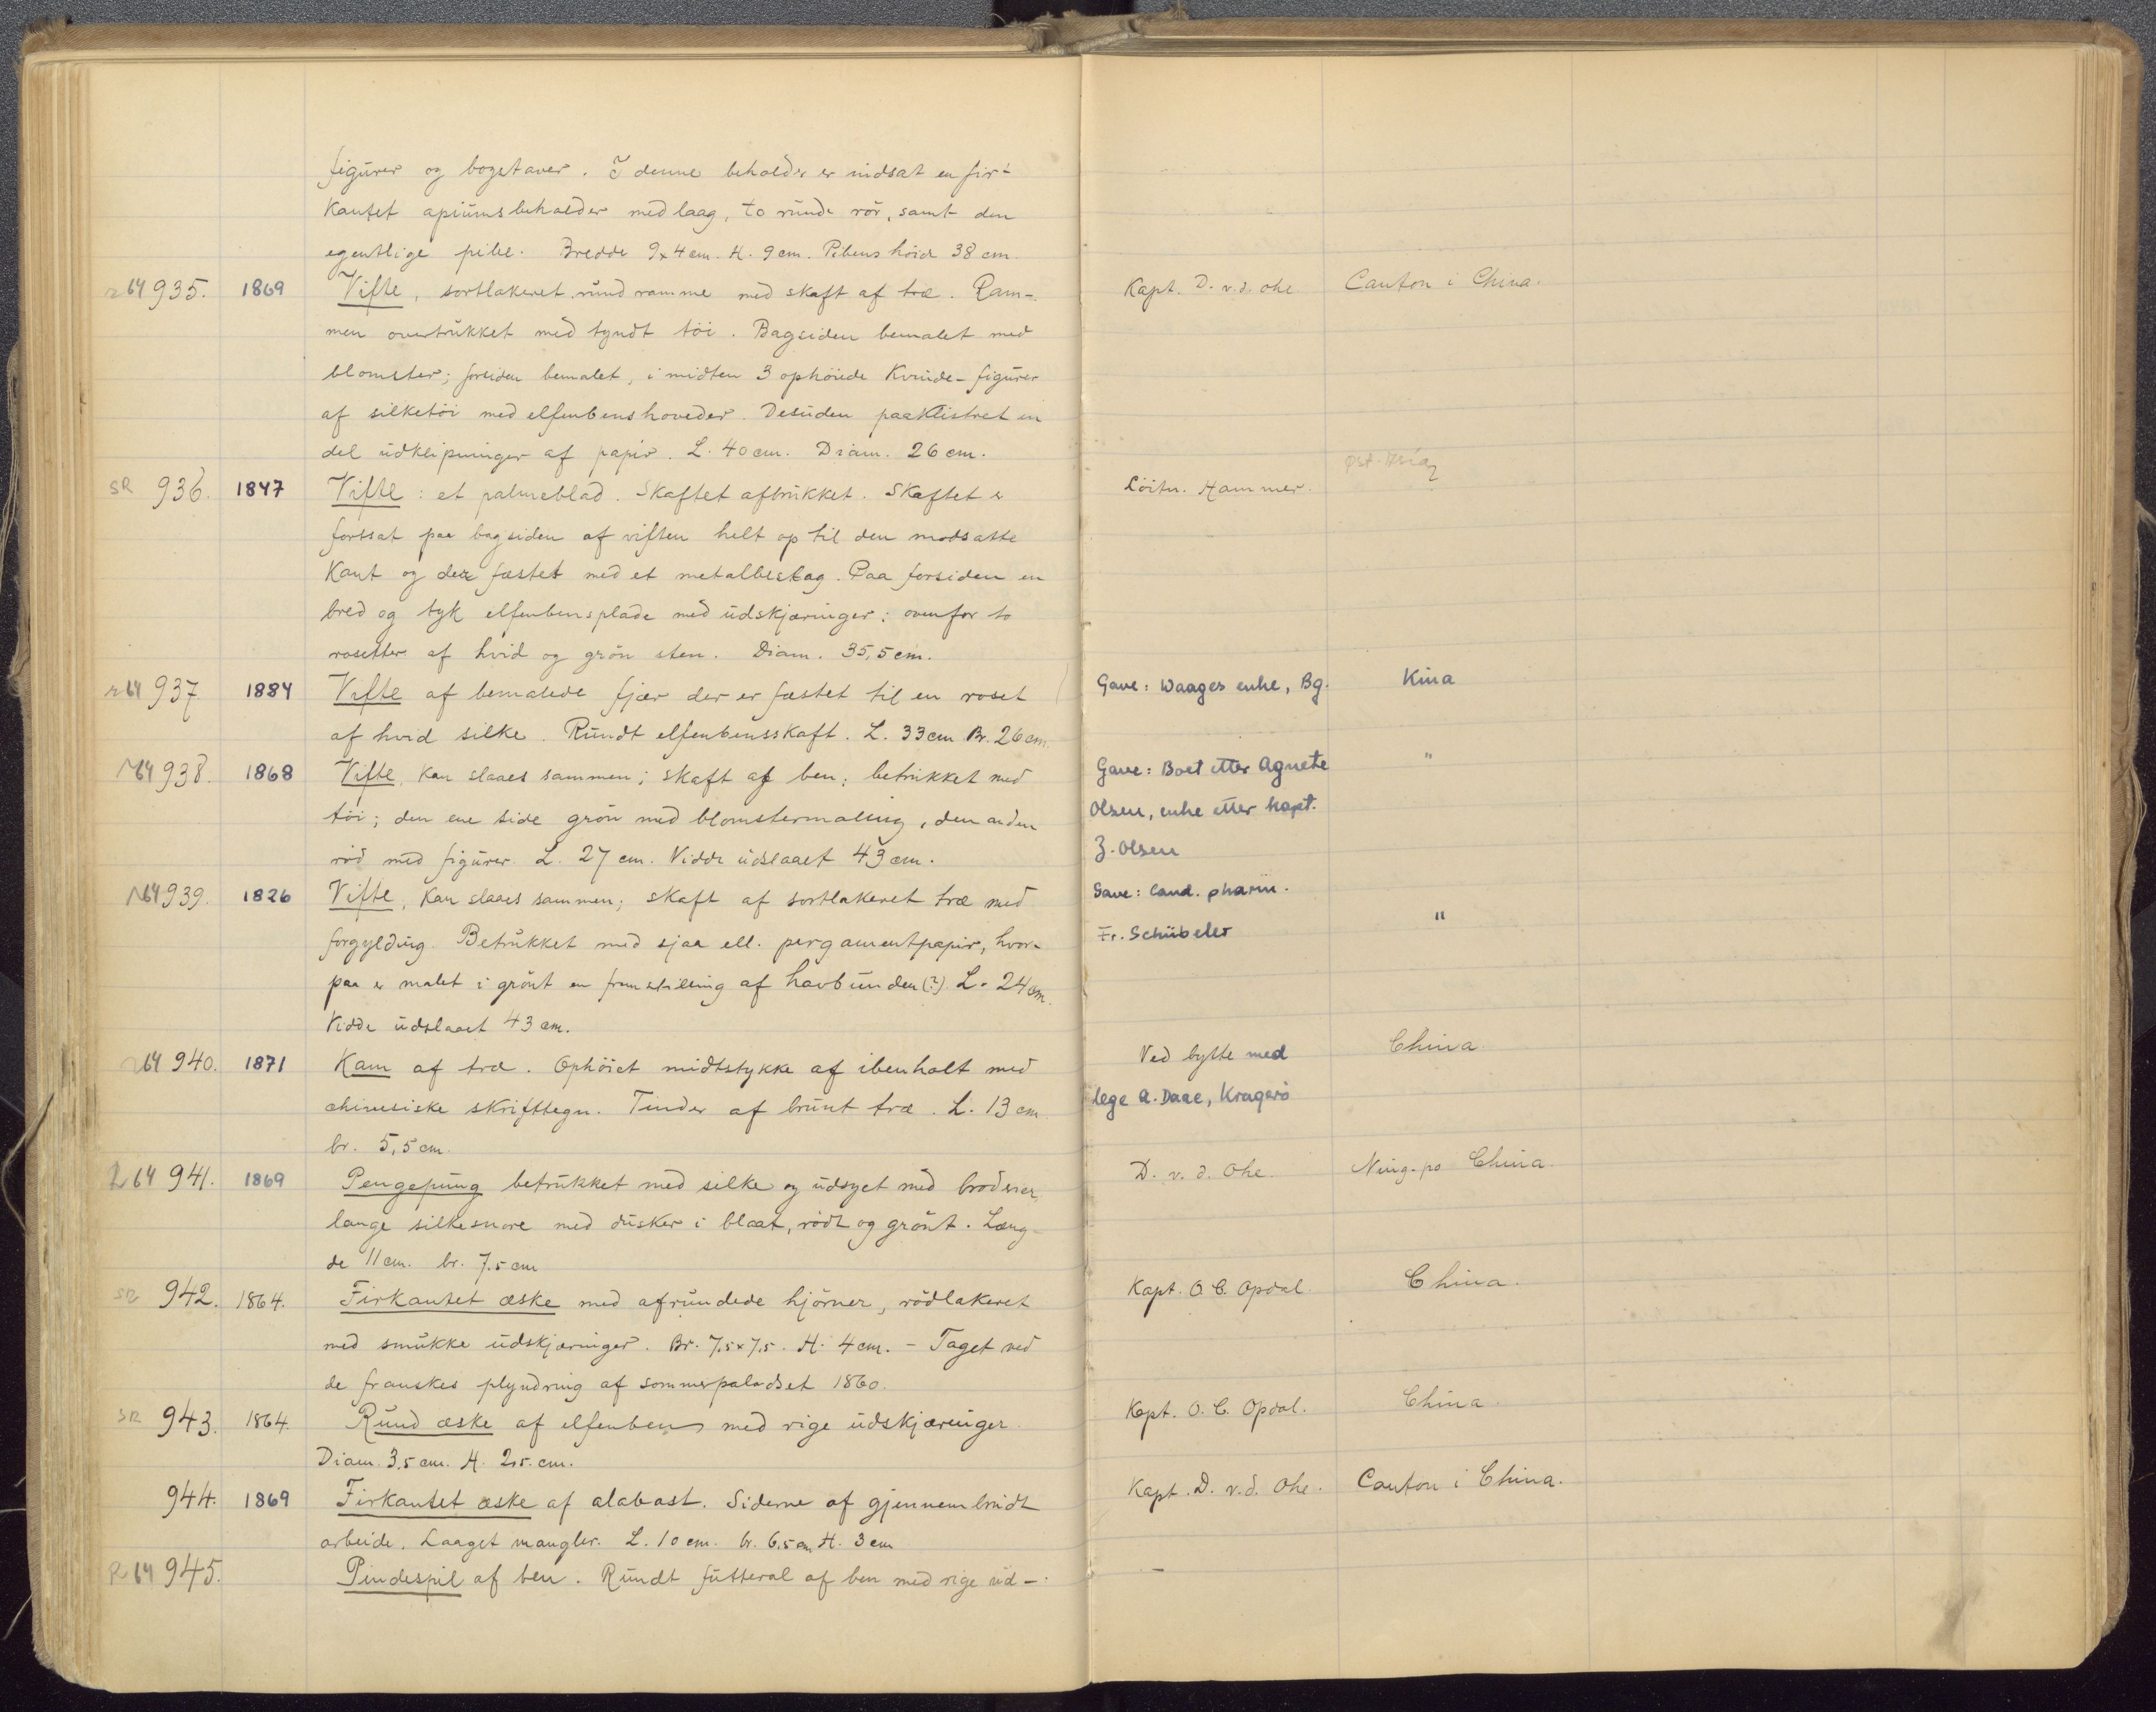 figurer og bogstaver. I denne beholder er indsat en fir-
kantet apiumsbeholder med laag, to runde rör, samt den
egentlige pibe. Bredde 9x4cm. H. 9cm. Pibens höide 38 cm.
935. 1869 Vifte, sortlakeret rund ramme med skaft af træ. Ram- Kapt. D. v. d. Ohe Canton i China.
men overtrukket med tyndt töi. Bagsiden bemalet med
blomster; forsiden bemalet, i midten 3 ophöiede Kvinde-figurer
af silketöi med elfenbenshoveder. Desuden paaklistret en
del udklipninger af papir. L. 40cm. Diam. 26cm.
SR 936. 1847 Vifte: et palmeblad. Skaftet afbrukket. Skaftet er Löitn. Hammer. Øst-Asia
fortsat paa bagsiden af viften helt op til den modsatte
Kant og der fæstet med et metalbeslag. Paa forsiden en
bred og tyk elfenbensplade med udskjæringer; ovenfor to
rosetter af hvid og grön sten. Diam. 35,5cm.
r64 937 1884 Vifte af bemalede fjær der er fæstet til en roset Gave: Waages enke, Bg. Kina
af hvid silke. Rundt elfenbensskaft. L. 33cm Br. 26cm.
r64 938. 1868 Vifte, Kan slaaes sammen; skaft af ben; betrukket med Gave: Boet etter Agnete "
töi; den ene side grön med blomstermaling, den anden Olsen, enke etter kapt.
röd med figurer. L. 27 cm. Vidde udslaaet 43cm. J. Olsen
r64 939. 1826 Vifte, Kan slaaes sammen; skaft af sortlakeret træ med Gave: Cand. pharm.
forgylding. Betrukket med sjaa ell. pergamentpapir, hvor- Fr. Schübeler "
paa er malet i grönt en fremstilling af havbunden(?) L. 24cm.
Vidde udslaaet 43cm.
r64 940. 1871 Kam af træ. Ophöiet midtstykke af ibenholt med Ved bytte med China
chinesiske skrifttegn. Tinder af brunt træ. L. 13cm. lege A. Daae, Kragerö
br. 5,5cm.
R64 941. 1869 Pengepung betrukket med silke og udsyet med broderier, D. v. d. Ohe. Ning-po China.
lange silkesnore med dusker i blaat, rödt og grönt. Læng-
de 11cm. br. 7.5cm
SR 942. 1864. Firkantet æske med afrundede hjörner, rödlakeret Kapt. O. C. Opdal. China.
med smukke udskjæringer. Br. 7,5x7,5. H. 4cm. - Taget ved
de franskes plyndring af sommerpaladset 1860.
SR 943. 1864. Rund æske af elfenben med rige udskjæringer Kapt. O. C. Opdal. China.
Diam. 3,5cm. H. 2,5.cm.
944. 1869 Firkantet æske af alabast. Siderne af gjennembrudt Kapt. D. v. d. Ohe. Canton i China.
arbeide. Laaget mangler. L. 10cm. br. 6,5cm H. 3cm
R64 945. Pindespil af ben. Rundt futteral af ben med rige ud-: -